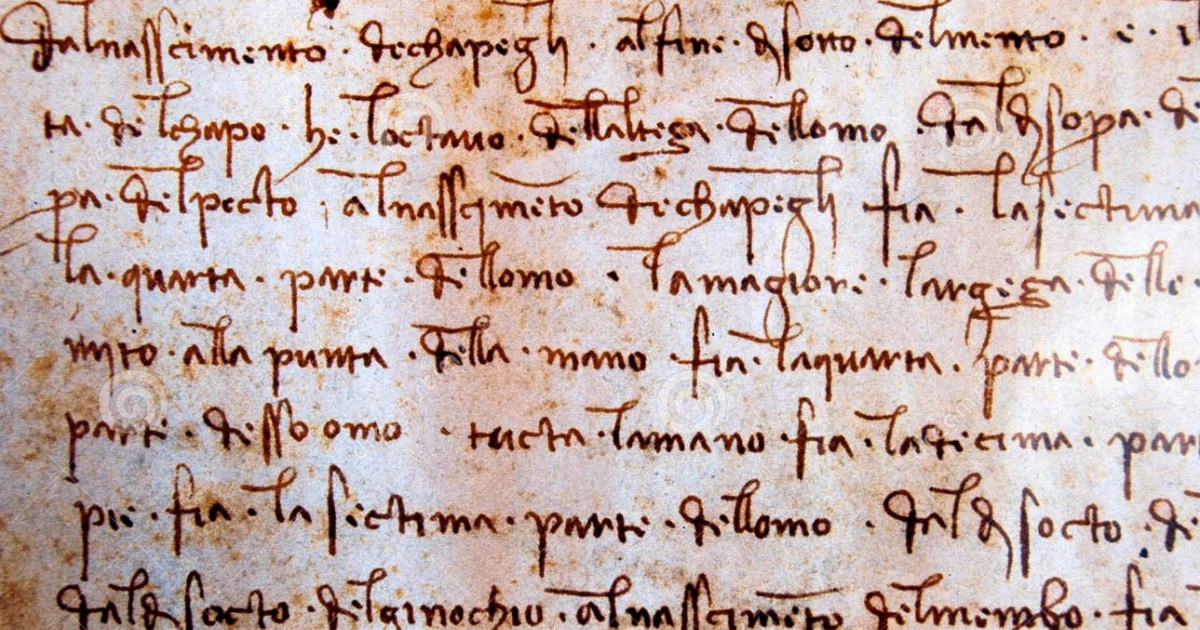 dalnasscimento · dechapegli · alfine · dj sotto · delmento · e · 1
ta · delchapo · he · loctavo · dellaltega · dellomo · dal dj sopa · de
pa · delpecto · alnasscimēto dechapegli fia · lasectima
la · quarta · parte · dellomo · lamagiore · largega · delle
mito · alla punta · della · mano · fia · laquarta · parte · dello
parte · desso omo · tucta · lamano · fia · ladecima · par
pie · fia · la sectima · parte · dellomo · dal dj socto · de
dal dj socto · delginochio · alnasscimēto delmembo · fia